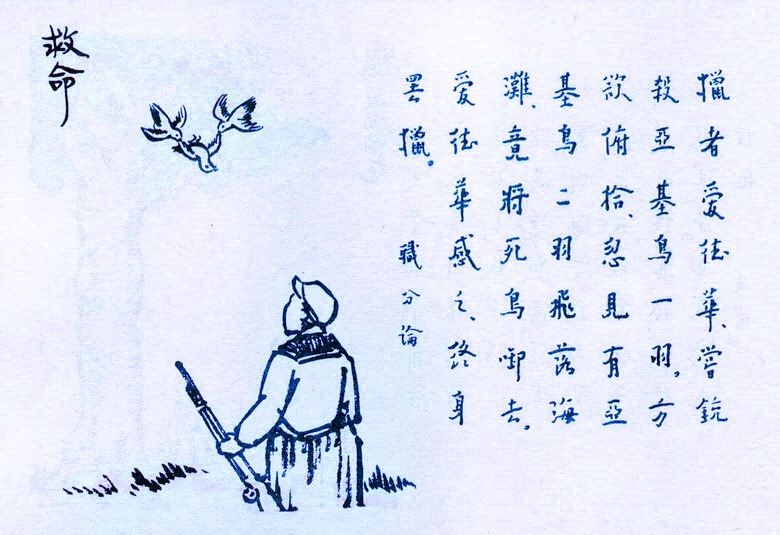 救命
獵者愛德華、嘗銃
殺亞基鳥一羽。方
欲俯拾、忽見有亞
基鳥二羽飛落海
灘、竟將死鳥啣去。
愛德華感之、終身
罢獵。
職分論